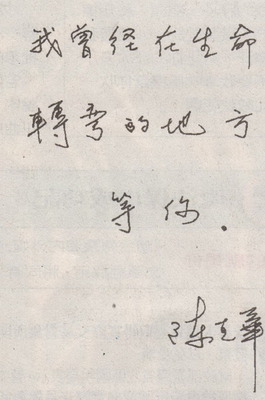 我曾经在生命
轉弯的地方
等你.
陈克華